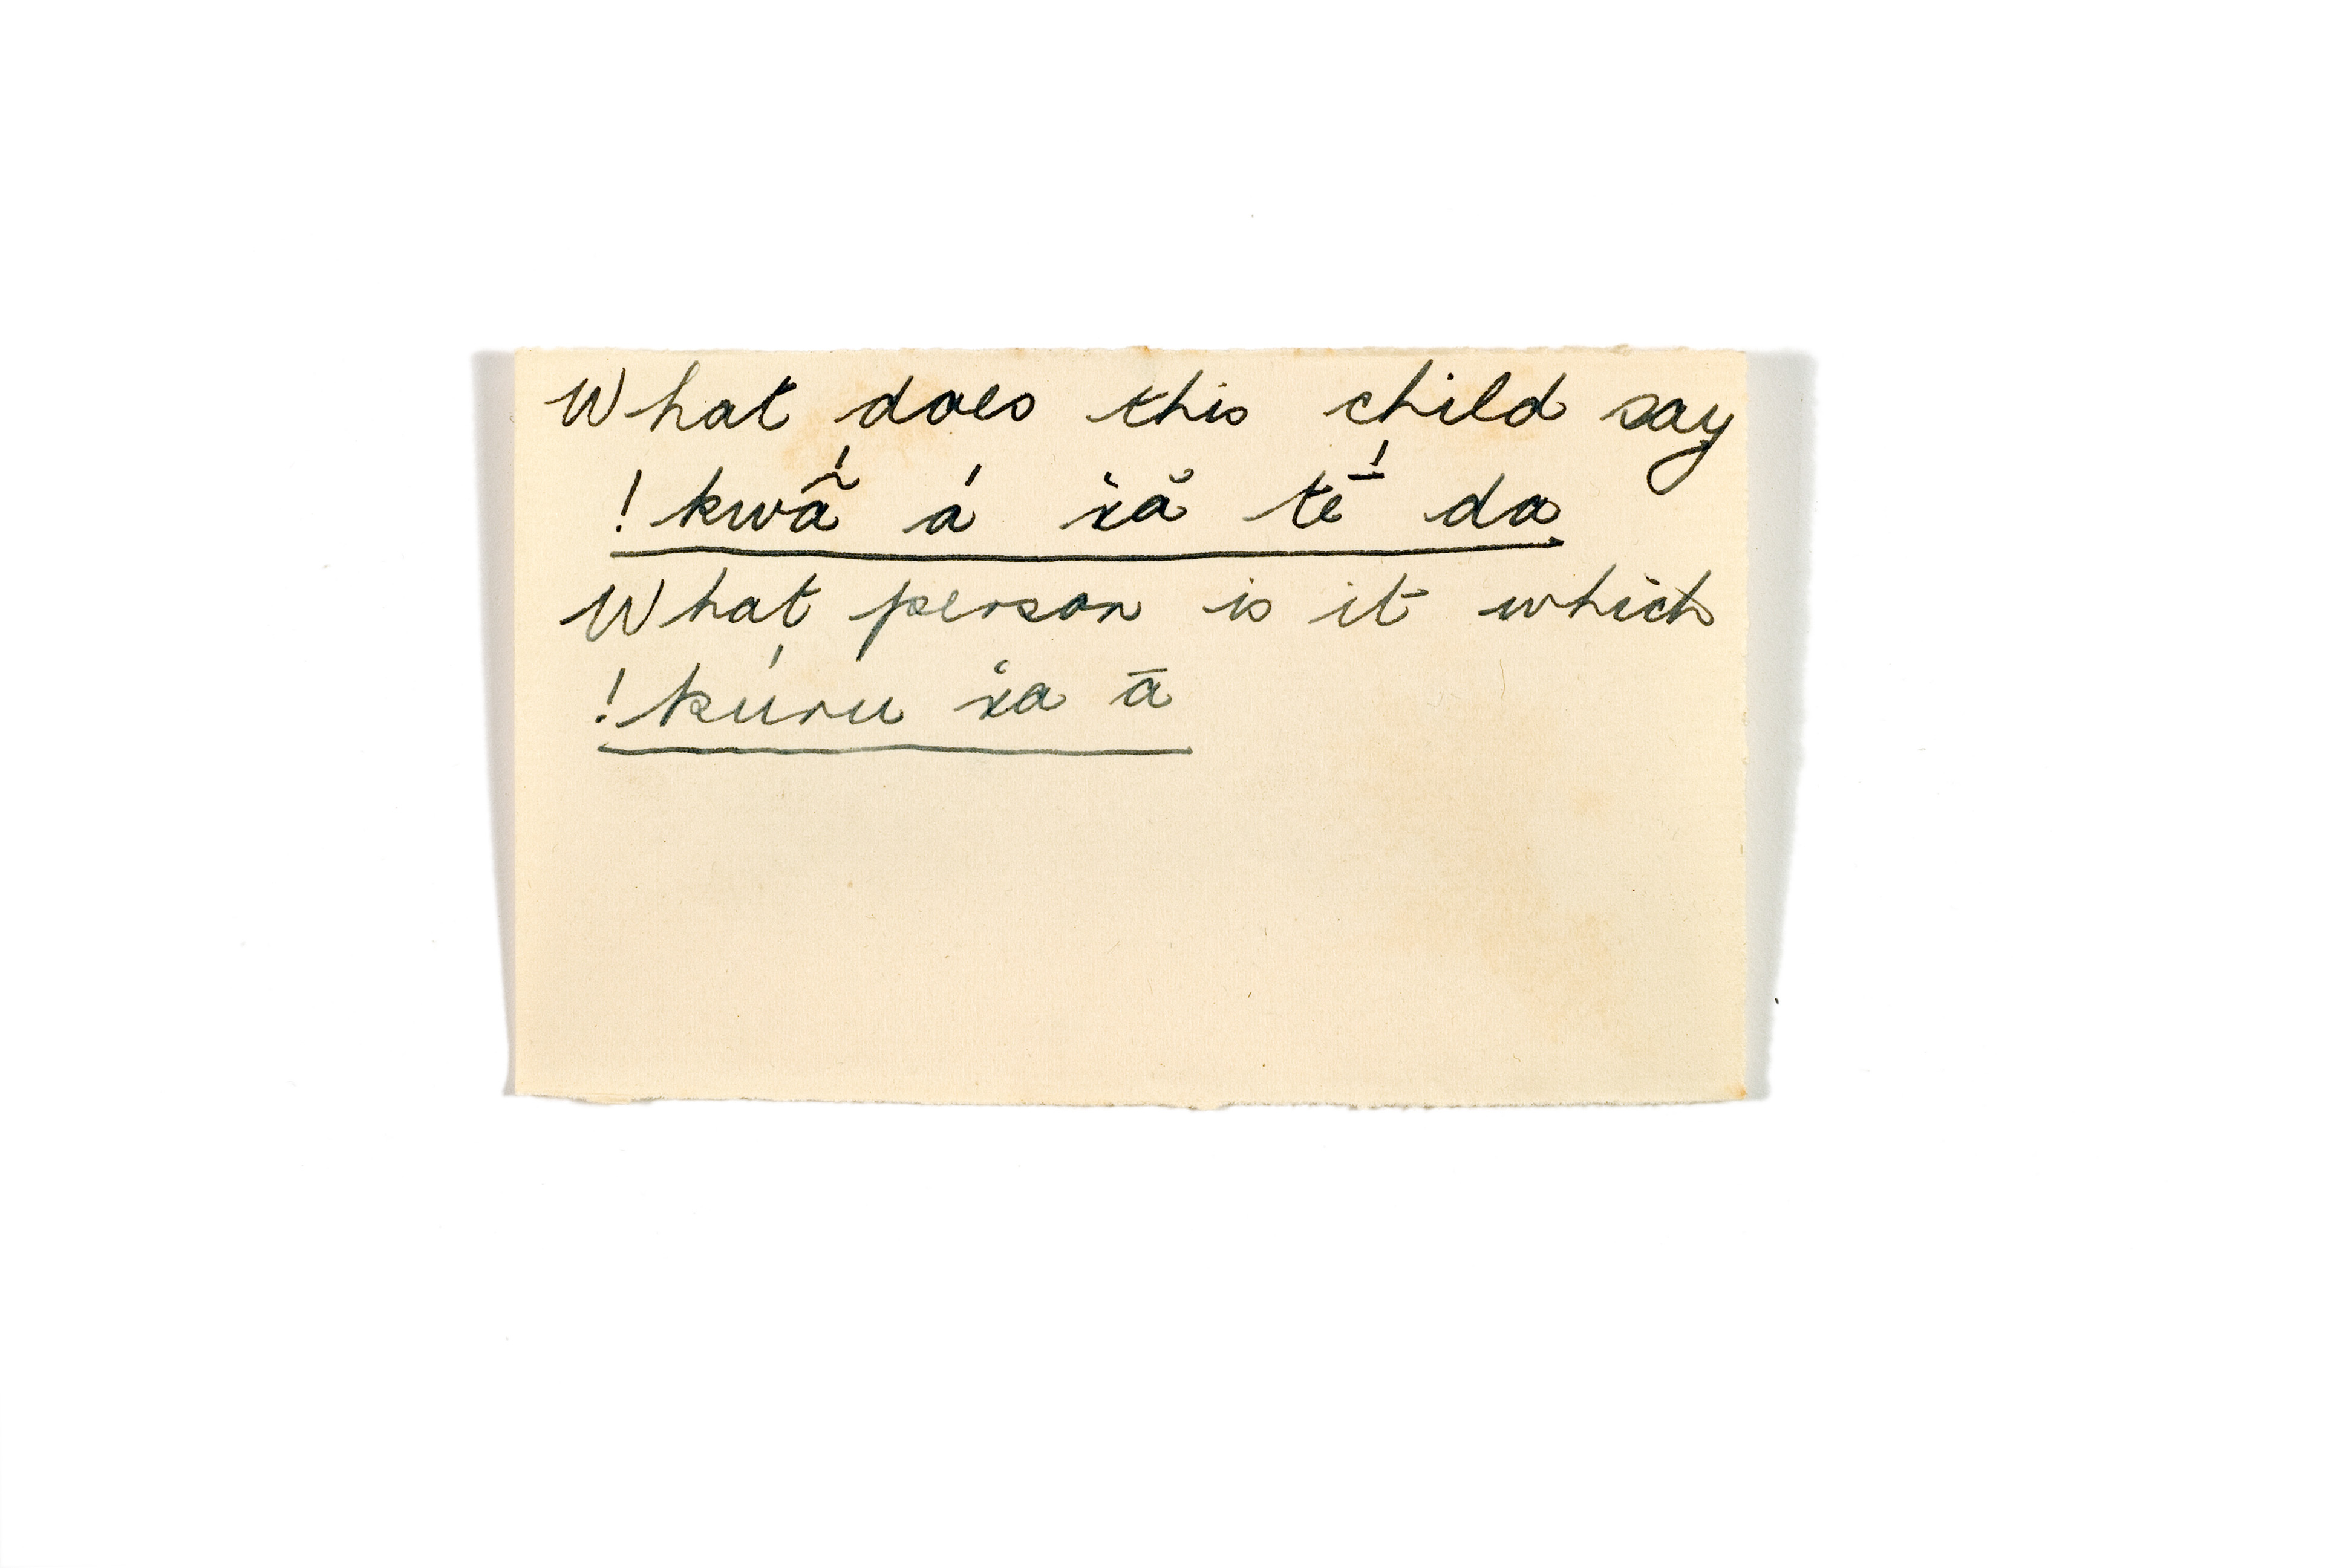 What does this child say
!kwã́ á ẋă tḗ da
What person is it which
!kúru ẋa ā